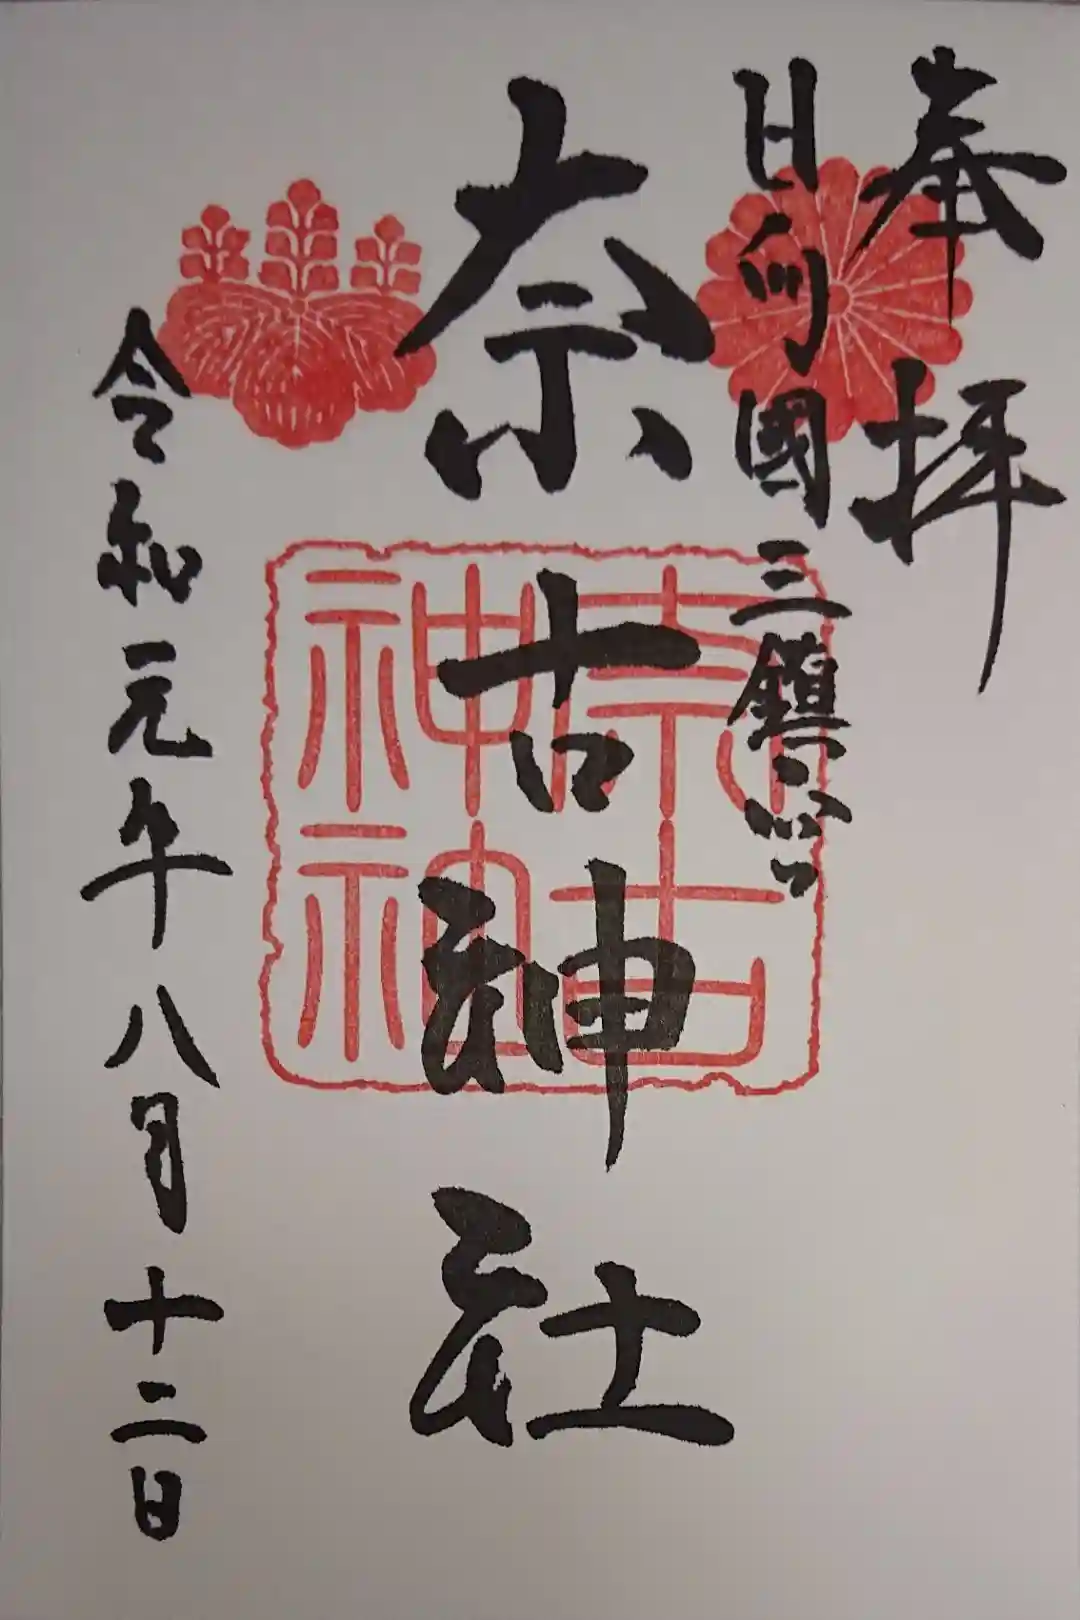 奉拝
日向國三鎮之一
奈古神社
奈古神社
令和元年八月十二日